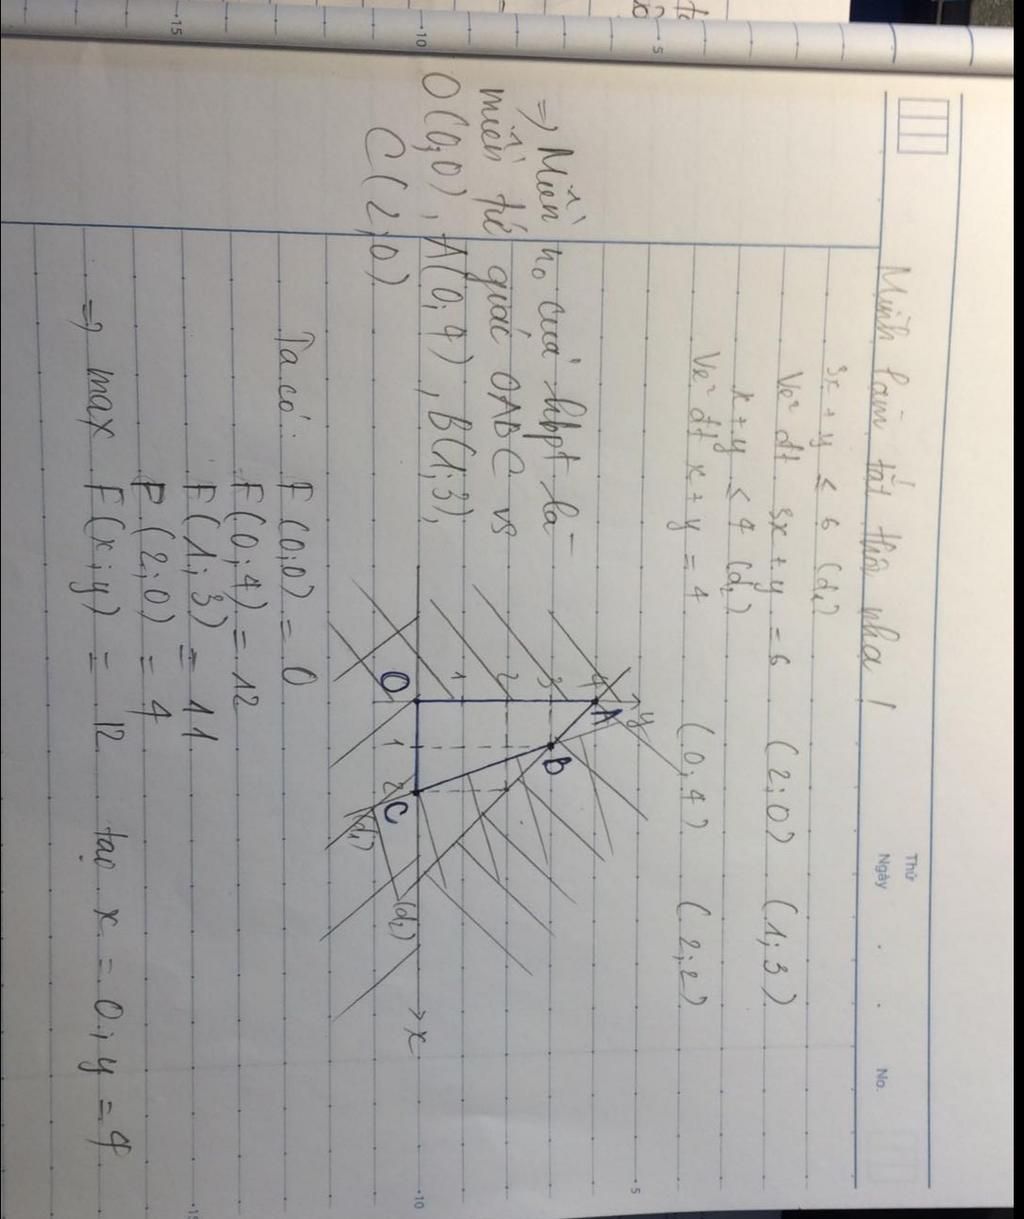 Thứ
Ngày
No.
Mình làm tắt thôi nha !
3x + y ≤ 6 (d₁)
Vẽ đt 3x + y = 6 (2;0) (1;3)
x + y ≤ 4 (d₂)
Vẽ đt x + y = 4 (0;4) (2;2)
⇒ Miền no của hbpt là
miền tứ giác OABC vs
O(0;0), A(0;4), B(1;3),
C(2;0)
y
4
A
3
B
2
1
O
1
2
C
x
(d₁)
(d₂)
Ta có: F(0;0) = 0
F(0;4) = 12
F(1;3) = 11
F(2;0) = 4
⇒ max F(x;y) = 12 tại x = 0; y = 4
5
10
15
5
10